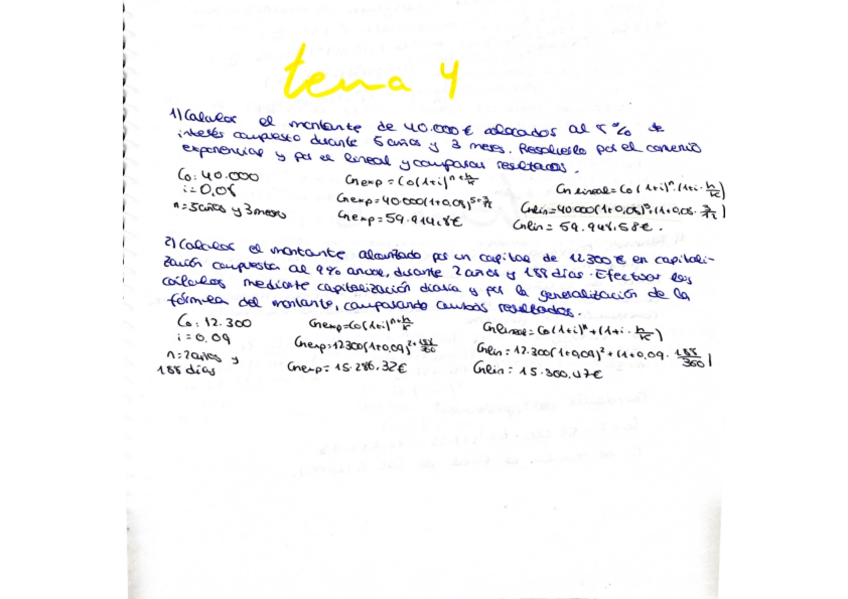 tema 4
1) Calcular el montante de 40.000€ colocados al 8% de
interés compuesto durante 5 años y 3 meses. Resolverlo por el convenio
exponencial y por el lineal y comparar resultados.
C₀: 40.000
i=0,08
n=5 años y 3 meses
Cnexp = C₀(1+i)^n+h/k
Cnexp=40000(1+0,08)^5+3/12
Cnexp=59.914,8€
Cn lineal= C₀(1+i)ⁿ.(1+i.h/k)
Cnlin=40000(1+0,08)⁵(1+0,08.3/12)
Cnlin= 59.948,58€.
2) Calcular el montante alcanzado por un capital de 12300€ en capitali-
zación compuesta al 9% anual, durante 2 años y 188 días. Efectuar los
cálculos mediante capitalización diaria y por la generalización de la
fórmula del montante, comparando ambos resultados.
C₀: 12.300
i=0,09
n=2 años y
188 días
Cnexp=C₀(1+i)^n+h/k
Cnexp=12300(1+0,09)^2+188/360
Cnexp= 15.286,32€
Cnlineal=C₀(1+i)ⁿ+(1+i.h/k)
Cnlin= 12.300(1+0,09)²+(1+0,09.188/360)
Cnlin: 15.300,47€